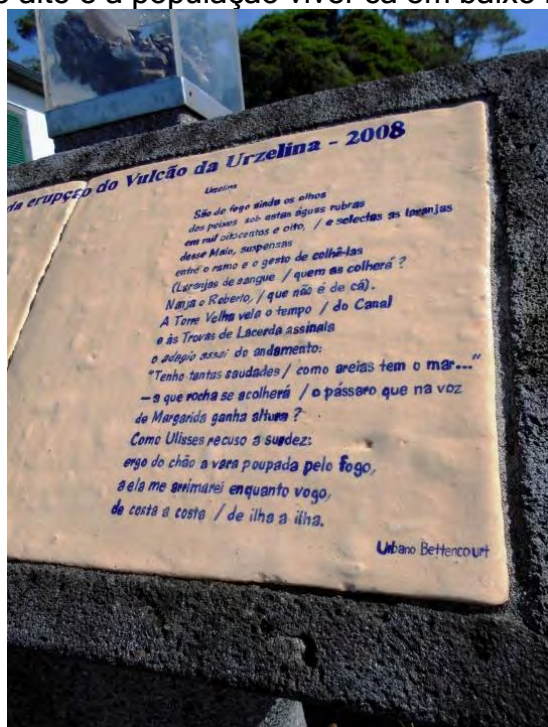 alto e a população viver cá em baixo
da erupção do Vulcão da Urzelina - 2008
Urzelina
São de fogo ainda os olhos
dos peixes sob estas águas rubras
em mil oitocentos e oito, / e selectas as laranjas
desse Maio, suspensas
entre o ramo e o gesto de colhê-las
(Laranjas de sangue / quem as colherá ?
Nanja o Roberto, / que não é de cá).
A Torre Velha vela o tempo / do Canal
e às Trovas de Lacerda assinala
o adagio assai do andamento:
"Tenho tantas saudades / como areias tem o mar..."
— a que rocha se acolherá / o pássaro que na voz
de Margarida ganha altura ?
Como Ulisses recuso a surdez:
ergo do chão a vara poupada pelo fogo,
a ela me arrimarei enquanto vogo,
de costa a costa / de ilha a ilha.
Urbano Bettencourt